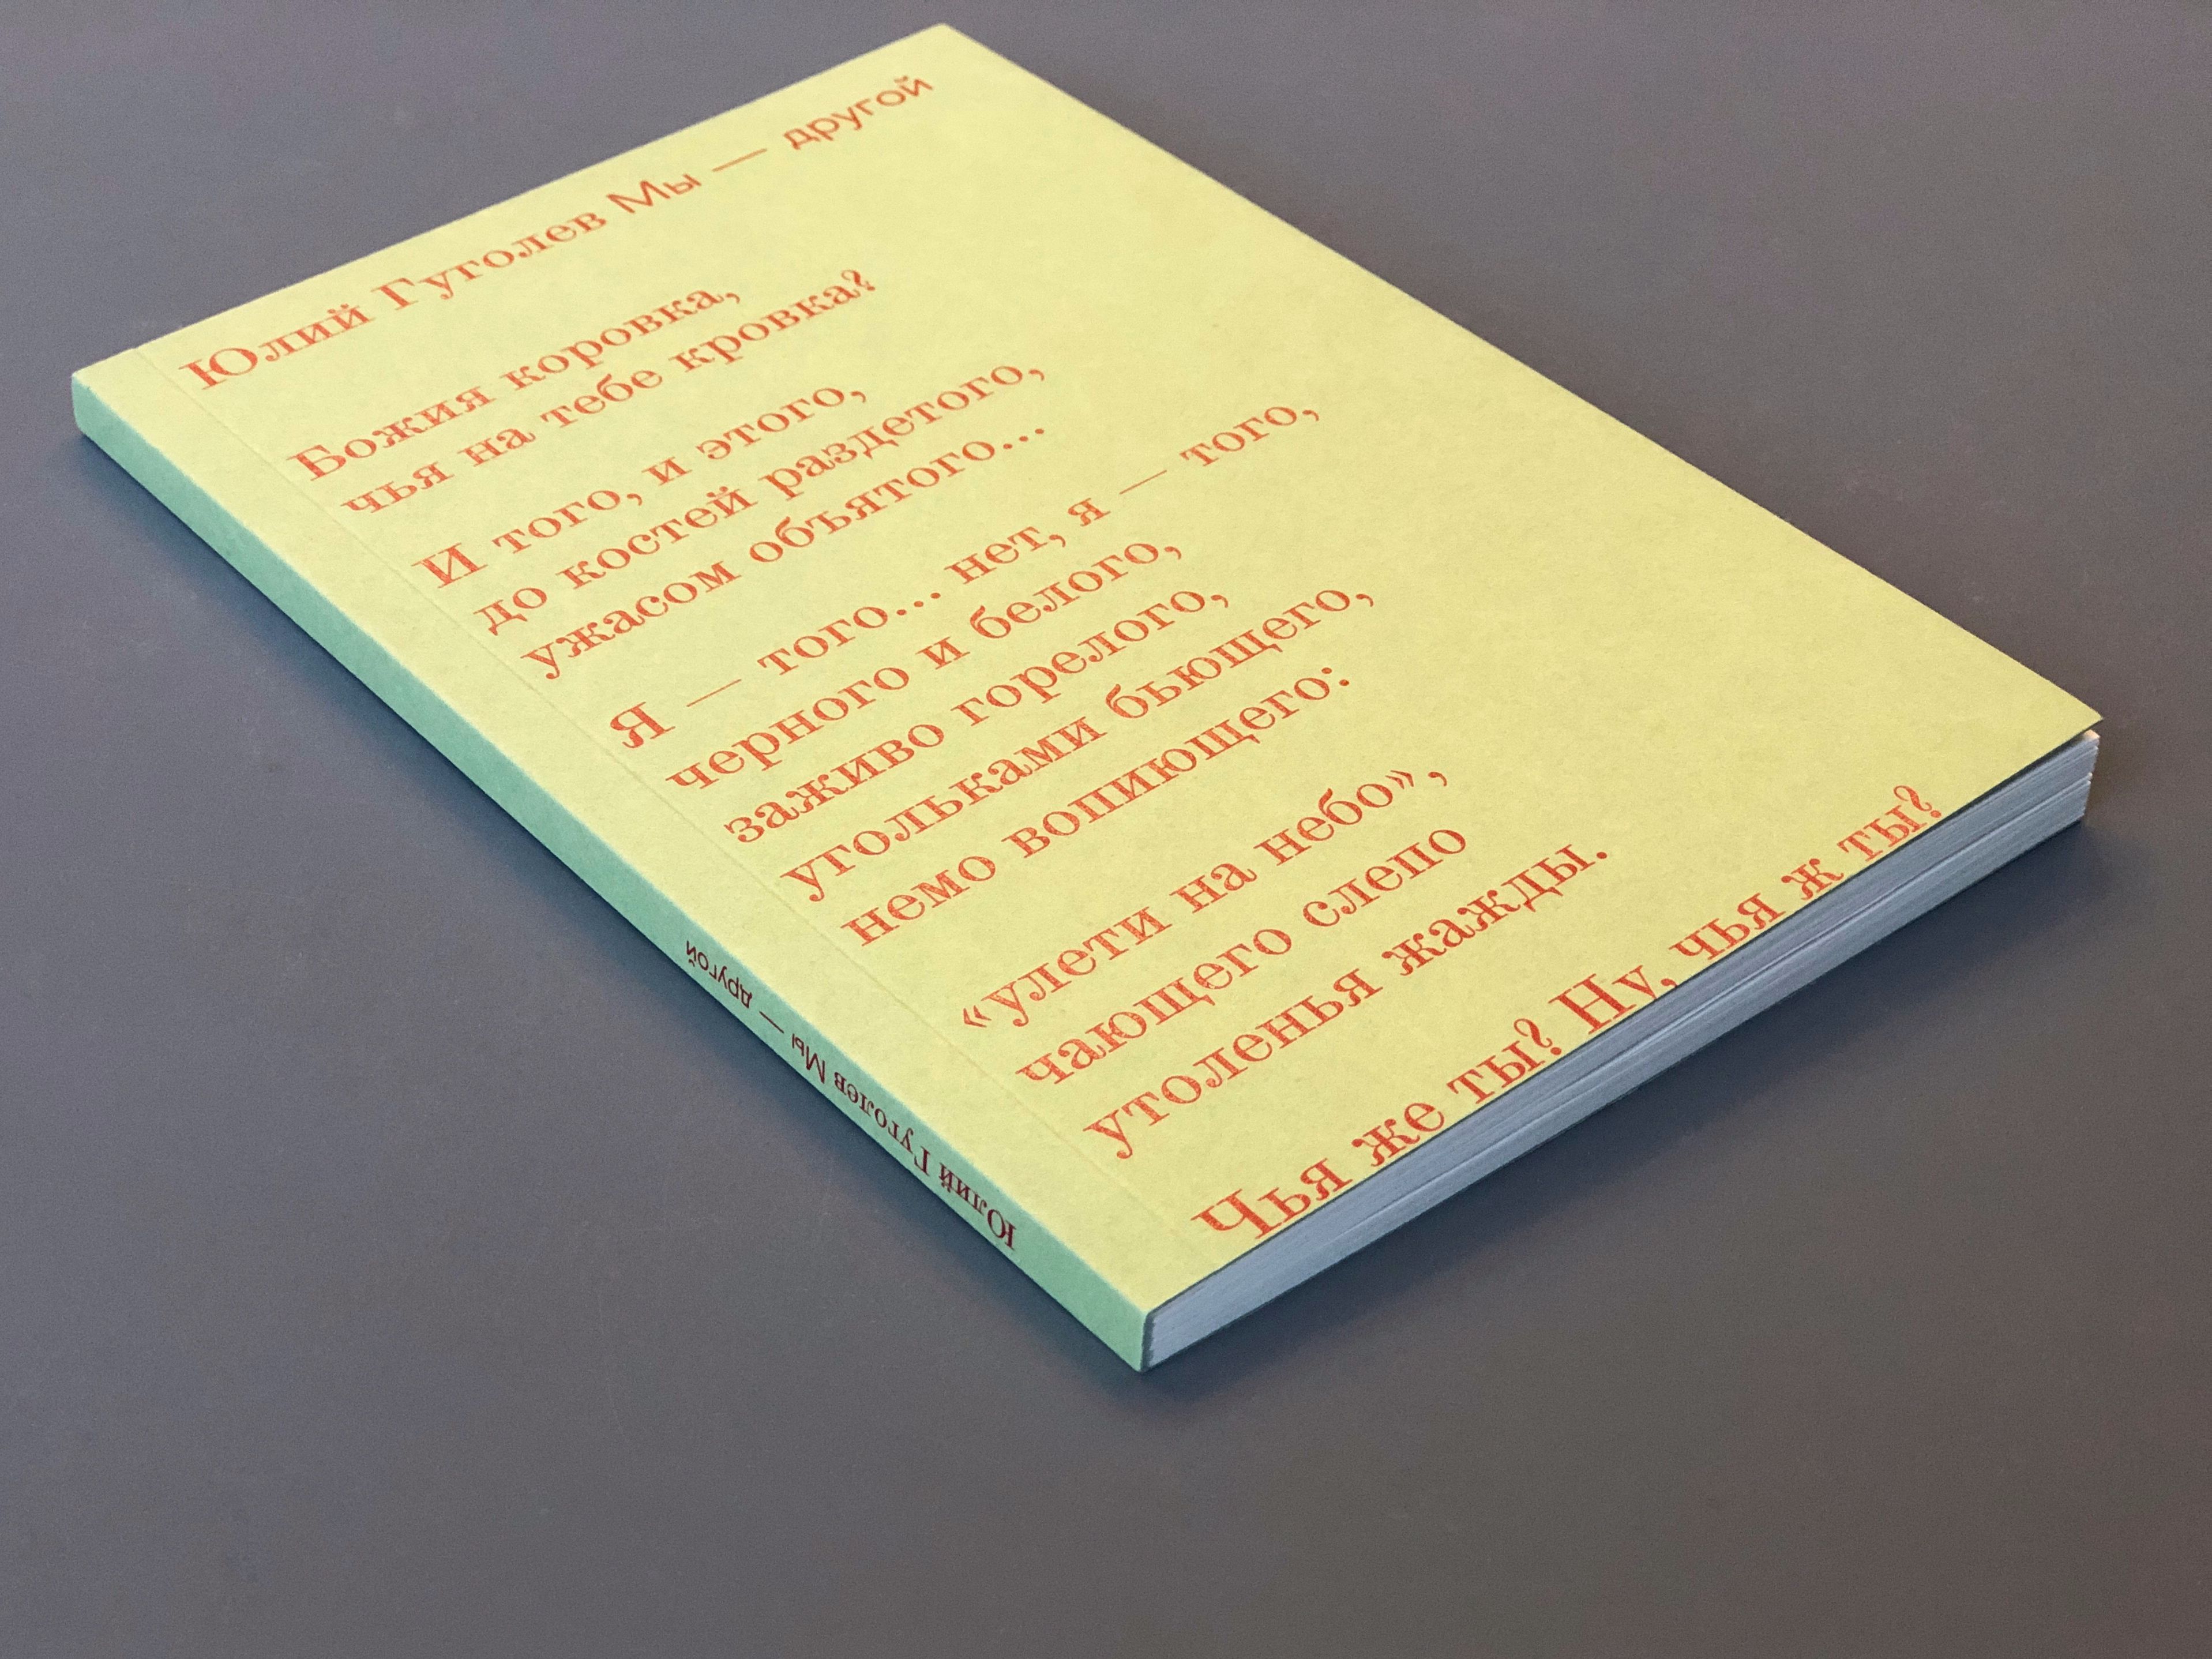 Юлий Гуголев Мы — другой
Божия коровка,
чья на тебе кровка?
И того, и этого,
до костей раздетого,
ужасом объятого...
Я — того... нет, я — того,
черного и белого,
заживо горелого,
угольками бьющего,
немо вопиющего:
«улети на небо»,
чающего слепо
утоленья жажды.
Чья же ты? Ну, чья ж ты?
Юлий Гуголев Мы — другой